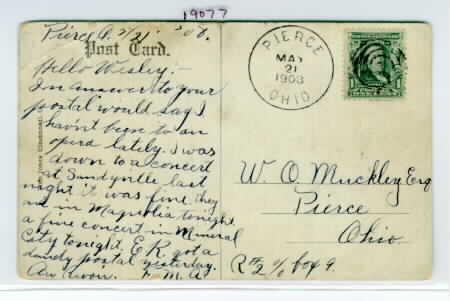 19077
Pierce O. 5/21 '08.
Post Card.
Hello Wesley:-
In Answer to your
postal would say I
havn't been to an
opera lately. I was
down to a concert
at Sandyville last
night it was fine they
are in Magnolia tonight
a fine concert in Mineral
City tonight. E.R. got a
dandy postal yesterday.
Au revoir.
PIERCE
MAY
21
1908
OHIO
W. O. Muckley Esq
Pierce
Ohio.
R#2 % box 9.